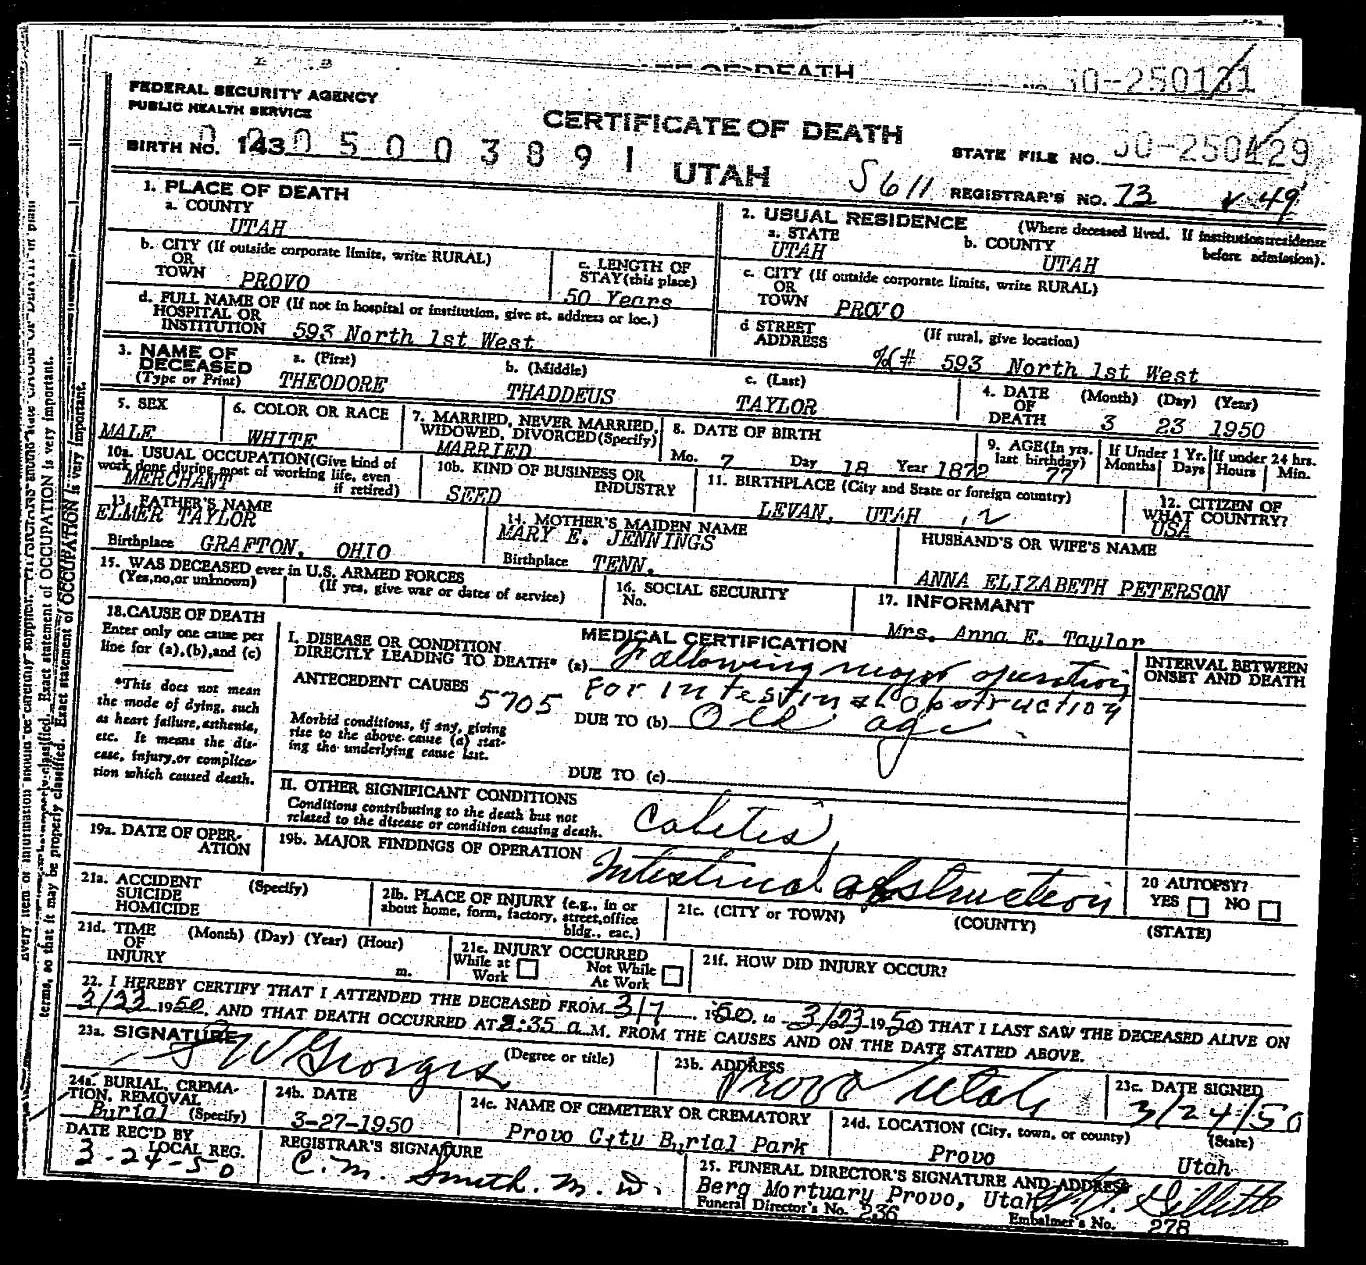 FEDERAL SECURITY AGENCY
PUBLIC HEALTH SERVICE
CERTIFICATE OF DEATH
UTAH
BIRTH NO. 143
0005003891
STATE FILE NO. 50-250129
S611 REGISTRAR'S NO. 73
49
1. PLACE OF DEATH
a. COUNTY
UTAH
b. CITY (If outside corporate limits, write RURAL)
OR
TOWN PROVO
c. LENGTH OF
STAY (this place)
50 Years
d. FULL NAME OF (If not in hospital or institution, give st. address or loc.)
HOSPITAL OR
INSTITUTION 593 North 1st West
2. USUAL RESIDENCE (Where deceased lived. If institution: residence
before admission).
a. STATE
UTAH
b. COUNTY
UTAH
c. CITY (If outside corporate limits, write RURAL)
OR
TOWN PROVO
d STREET
ADDRESS (If rural, give location)
593 North 1st West
3. NAME OF
DECEASED
(Type or Print)
a. (First)
THEODORE
b. (Middle)
THADDEUS
c. (Last)
TAYLOR
4. DATE
OF
DEATH
(Month) (Day) (Year)
3 23 1950
5. SEX
MALE
6. COLOR OR RACE
WHITE
7. MARRIED, NEVER MARRIED,
WIDOWED, DIVORCED (Specify)
MARRIED
8. DATE OF BIRTH
Mo. 7 Day 18 Year 1872
9. AGE (In yrs.
last birthday)
77
If Under 1 Yr.
Months Days
If under 24 hrs.
Hours Min.
10a. USUAL OCCUPATION (Give kind of
work done during most of working life, even
if retired)
MERCHANT
10b. KIND OF BUSINESS OR
INDUSTRY
SEED
11. BIRTHPLACE (City and State or foreign country)
LEVAN, UTAH
12. CITIZEN OF
WHAT COUNTRY?
USA
13. FATHER'S NAME
ELMER TAYLOR
Birthplace GRAFTON, OHIO
14. MOTHER'S MAIDEN NAME
MARY E. JENNINGS
Birthplace TENN.
HUSBAND'S OR WIFE'S NAME
ANNA ELIZABETH PETERSON
15. WAS DECEASED ever in U.S. ARMED FORCES
(Yes, no, or unknown) (If yes, give war or dates of service)
16. SOCIAL SECURITY
No.
17. INFORMANT
Mrs. Anna E. Taylor
18. CAUSE OF DEATH
Enter only one cause per
line for (a), (b), and (c)
*This does not mean
the mode of dying, such
as heart failure, asthenia,
etc. It means the dis-
ease, injury, or complica-
tion which caused death.
MEDICAL CERTIFICATION
I. DISEASE OR CONDITION
DIRECTLY LEADING TO DEATH* (a) Following major operation
For intestinal obstruction
ANTECEDENT CAUSES
5705
Morbid conditions, if any, giving
rise to the above cause (a) stat-
ing the underlying cause last.
DUE TO (b) Old age
DUE TO (c)
II. OTHER SIGNIFICANT CONDITIONS
Conditions contributing to the death but not
related to the disease or condition causing death.
INTERVAL BETWEEN
ONSET AND DEATH
19a. DATE OF OPER-
ATION
19b. MAJOR FINDINGS OF OPERATION
Intestinal obstruction
20 AUTOPSY?
YES NO
21a. ACCIDENT
SUICIDE
HOMICIDE
(Specify)
21b. PLACE OF INJURY (e.g., in or
about home, form, factory, street, office
bldg., eac.)
21c. (CITY or TOWN) (COUNTY) (STATE)
21d. TIME
OF
INJURY
(Month) (Day) (Year) (Hour)
m.
21e. INJURY OCCURRED
While at
Work
Not While
At Work
21f. HOW DID INJURY OCCUR?
22. I HEREBY CERTIFY THAT I ATTENDED THE DECEASED FROM 3/7 1950, to 3/23 1950 THAT I LAST SAW THE DECEASED ALIVE ON
3/23 1950, AND THAT DEATH OCCURRED AT 8:35 a M. FROM THE CAUSES AND ON THE DATE STATED ABOVE.
23a. SIGNATURE (Degree or title)
W Georges
23b. ADDRESS
Provo Utah
23c. DATE SIGNED
3/24/50
24a. BURIAL, CREMA-
TION, REMOVAL
(Specify)
Burial
24b. DATE
3-27-1950
24c. NAME OF CEMETERY OR CREMATORY
Provo City Burial Park
24d. LOCATION (City, town, or county) (State)
Provo Utah
DATE REC'D BY
LOCAL REG.
3-24-50
REGISTRAR'S SIGNATURE
C. M. Smith. M. D.
25. FUNERAL DIRECTOR'S SIGNATURE AND ADDRESS
Berg Mortuary Provo, Utah
Gillette
Funeral Director's No. 236
Embalmer's No. 278
50-250131